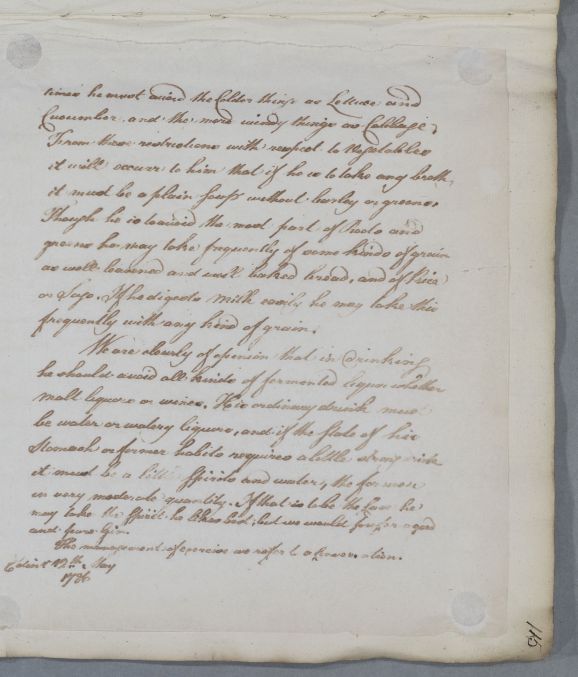 times he must avoid the Colder things as Lettuce and
Cucumber and the more windy things as Cabbage,
From these restrictions with respect to Vegetables
it will occurr to him that if he is to take any broth,
it must be a plain soup without barley or greens.
Though he is to avoid the most part of Roots and
greens he may take frequently of some kinds of grain
as well leavened and well baked bread, and of Rice
or Sago. If he digests milk easily he may take this
frequently with any kind of grain.
We are clearly of opinion that in Drinking
he should avoid all kinds of fermented liquor whether
malt liquors or wines. His ordinary drink must
be water or watery liquors, and if the State of his
Stomach or former habits requires a little strong drink
it must be a little Spirits and water, the former
in very moderate quantity. If that is to be the Case he
may take the Spirit he likes best, but we would prefer a good
and pure Gin.
The management of exercise we refer to
Edinr. 12th. May
1786
145